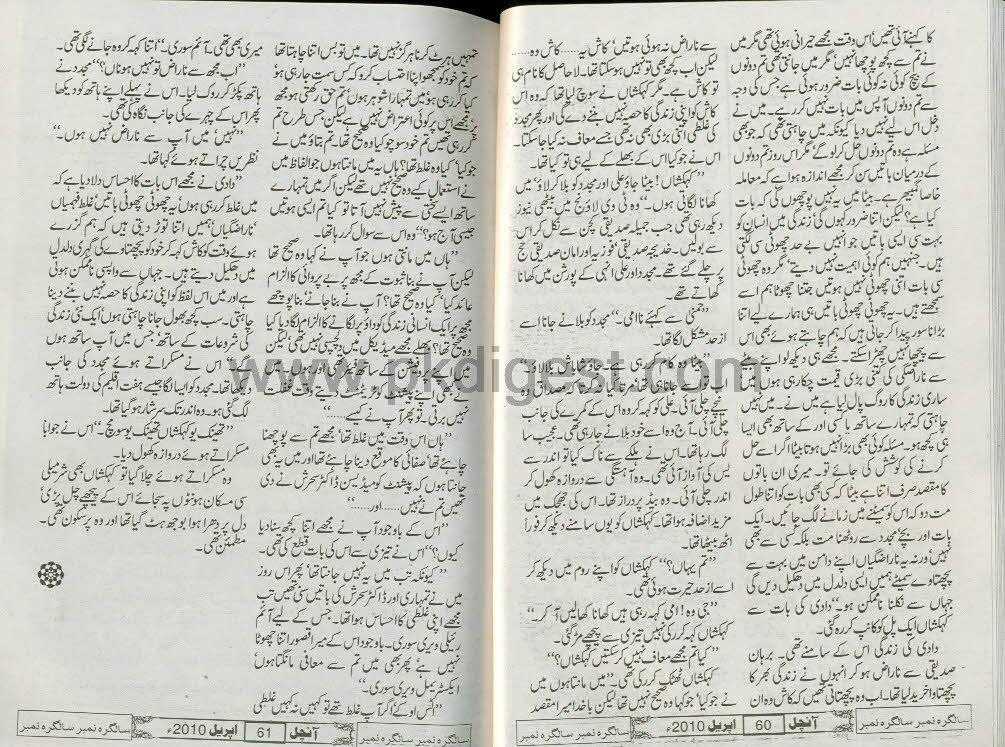 کا کہنے آئی تھیں' اس وقت مجھے حیرانی ہوئی تھی مگر میں
نے تم سے کچھ پوچھا نہیں' مگر میں جانتی تھی تم دونوں
کے بیچ کوئی نہ کوئی بات ضرور ہوئی ہے جس کی وجہ
سے تم دونوں آپس میں بات نہیں کر رہے۔ میں نے
دخل اس لیے نہیں دیا کیونکہ میں چاہتی تھی کہ جو بھی
مسئلہ ہے وہ تم دونوں حل کر لو گے' مگر اس روز تم دونوں
کے درمیان باتیں سن کر مجھے اندازہ ہوا ہے کہ معاملہ
خاصا گمبھیر ہے۔ بیٹا میں یہ نہیں پوچھوں گی کہ بات
کیا ہے؟ لیکن اتنا ضرور کہوں گی' زندگی میں انسان کو
بہت سی ایسی باتیں جو انہیں بے حد چھوٹی سی لگتی
ہیں۔ جنہیں ہم کوئی اہمیت نہیں دیتے' مگر وہ چھوٹی
سی بات اتنی چھوٹی نہیں ہوتیں جتنا چھوٹا ہم اسے
سمجھتے ہیں۔ یہ چھوٹی چھوٹی باتیں ہی ہمارے لیے اتنا
بڑا ناسور پیدا کر جاتی ہیں کہ ہم چاہتے ہوئے بھی اس
سے پیچھا نہیں چھڑا سکتے۔ مجھے ہی دیکھو اپنے بیٹے
سے ناراضگی کی کتنی بڑی قیمت چکا رہی ہوں میں'
ساری زندگی کا روگ پال لیا ہے میں نے۔ میں نہیں
چاہتی کہ تمہارے ساتھ یا کسی اور کے ساتھ بھی ایسا
ہی کچھ ہو۔ مسئلہ کوئی بھی بڑا نہیں ہوتا بیٹا اگر اسے حل
کرنے کی کوشش کی جائے تو۔ میری ان باتوں
کا مقصد صرف اتنا ہے بیٹا کہ کسی بھی بات کو اتنا طول
مت دو کہ اس کو سمیٹنے میں زمانے لگ جائیں۔ ایک
بات اور بیٹے مجدد سے روٹھنا مت بلکہ کسی سے بھی
نہیں' ورنہ یہ ناراضگیاں اپنے دامن میں بہت سے
پچھتاوے سمیٹے ہمیں ایسی دلدل میں دھکیل دیں گی
جہاں سے نکلنا ناممکن ہو۔" دادی کی بات سے
کہکشاں ایک پل کو کانپ کر رہ گئی۔
دادی کی زندگی اس کے سامنے تھی۔ برہان
صدیقی سے ناراض ہو کر انہوں نے زندگی بھر کا
پچھتاوا خرید لیا تھا۔ اب وہ پچھتاتی تھیں کہ کاش وہ ان
سے ناراض نہ ہوئی ہوتیں' کاش یہ...... کاش وہ......
لیکن اب کچھ بھی تو نہیں ہو سکتا تھا۔ لا حاصل کا نام ہی
تو کاش ہے۔ مگر کہکشاں نے سوچ لیا تھا کہ وہ اس
کاش کو اپنی زندگی کا حصہ نہیں بننے دے گی اور پھر مجدد
کی غلطی اتنی بڑی بھی نہ تھی جسے معاف نہ کیا جا سکتا۔
اس نے جو کیا اس کے بھلے کے لیے ہی تو کیا تھا۔
"کہکشاں! بیٹا جاؤ علی اور مجدد کو بلا کر لاؤ' میں
کھانا لگاتی ہوں۔" وہ ٹی وی لاؤنج میں بیٹھی نیوز
دیکھ رہی تھی جب جمیلہ صدیقی کچن سے نکل کر اس
سے بولیں۔ خدیجہ صدیقی' فوزیہ اور امان صدیقی حج
پر چلے گئے تھے۔ مجدد اور علی انہی کے پورشن میں کھانا
کھاتے تھے۔
سے کہیے نا امی۔" مجدد کو بلانے جانا اسے
از حد مشکل لگا تھا۔
www.pkdigest.com
چلی آئی۔ آج وہ اسے خود بلانے جا رہی تھی۔ عجیب سا
لگ رہا تھا۔ اس نے ہلکے سے ناک کیا تو اندر سے
یس کی آواز آئی تھی۔ وہ آہستگی سے دروازہ کھول کر
اندر چلی آئی۔ وہ بیڈ پر دراز تھا۔ اس کی جھجک میں
مزید اضافہ ہوا تھا۔ کہکشاں کو یوں سامنے دیکھ کر فوراً
اٹھ بیٹھا تھا۔
"تم یہاں؟" کہکشاں کو اپنے روم میں دیکھ کر
اسے از حد حیرت ہوئی تھی۔
"جی وہ! امی کہہ رہی ہیں کھانا کھا لیں آ کر۔"
کہکشاں کہہ کر رکی نہیں تیزی سے پیچھے مڑ گئی۔
"کیا تم مجھے معاف نہیں کر سکتیں کہکشاں؟"
کہکشاں ٹھٹک کر رکی تھی۔ "میں مانتا ہوں میں
نے جو کیا' جو کہا وہ صحیح نہیں تھا لیکن باخدا میرا مقصد
سالگرہ نمبر سالگرہ نمبر آنچل 60 اپریل 2010ء سالگرہ نمبر سالگرہ نمبر
تمہیں ہرٹ کرنا ہرگز نہیں تھا۔ میں تو بس اتنا چاہتا تھا
کہ تم خود کو سمجھو اپنا احتساب کرو کہ کس سمت جا رہی ہو'
کیا کر رہی ہو' میں تمہارا شوہر ہوں' تم حق رکھتی ہو مجھ
پر' مجھے اس پر کوئی اعتراض نہیں ہے لیکن جس طرح تم
کر رہی تھیں تم خود سوچو کیا وہ صحیح تھا۔ تم بتاؤ میں نے
جو کیا' کیا وہ غلط تھا؟ ہاں یہ میں مانتا ہوں جو الفاظ میں
نے استعمال کیے وہ صحیح نہیں تھے لیکن اگر میں تمہارے
ساتھ ایسے سختی سے پیش نہیں آتا تو کیا تم ایسی ہوتیں
جیسی آج ہو؟" وہ اس سے سوال کر رہا تھا۔
"ہاں میں مانتی ہوں جو آپ نے کہا وہ صحیح تھا
لیکن آپ نے بنا ثبوت کے مجھ پر بے پروائی کا الزام
عائد کیا' کیا وہ صحیح تھا؟ آپ نے بنا جانے' بنا پوچھے
مجھ پر ایک انسانی زندگی کو داؤ پر لگانے کا الزام لگا دیا' کیا
وہ صحیح تھا؟ بھلے مجھے میڈیکل میں دلچسپی نہیں تھی' لیکن
نہیں برتی۔ تو پھر آپ نے کیسے......"
"ہاں اس وقت میں غلط تھا' مجھے تم سے پوچھنا
چاہئے تھا' صفائی کا موقع دینا چاہئے تھا اور میں یہ بھی
جانتا ہوں کہ پیشنٹ کو میڈیسن ڈاکٹر سحرش نے دی
تھیں تم نے نہیں...... اور......"
"اس کے باوجود آپ نے مجھے اتنا کچھ سنا دیا
کیوں؟" اس نے تیزی سے اس کی بات قطع کی تھی۔
"کیونکہ تب میں یہ نہیں جانتا تھا' پھر اس روز
میں نے تمہاری اور ڈاکٹر سحرش کی باتیں سنی تھیں تب
مجھے اپنی غلطی کا احساس ہوا تھا۔ جس کے لیے آئم
رئیلی ویری سوری۔ باوجود اس کے میرا قصور اتنا چھوٹا
نہیں ہے' پھر بھی میں تم سے معافی مانگتا ہوں'
ایکسٹریملی ویری سوری۔"
"اٹس او کے! اگر آپ غلط تھے تو کہیں نہ کہیں غلطی
میری بھی تھی۔ آئم سوری۔" اتنا کہہ کر وہ جانے لگی تھی۔
"اب مجھ سے ناراض تو نہیں ہو ناں؟" مجدد نے
ہاتھ پکڑ کر روک لیا۔ اس نے پہلے اپنے ہاتھ کو دیکھا
پھر اس کے چہرے کی جانب نگاہ کی تھی۔
"نہیں' میں آپ سے ناراض نہیں ہوں۔"
نظریں چراتے ہوئے کہا تھا۔
"دادی نے مجھے اس بات کا احساس دلا دیا ہے کہ
میں غلط کر رہی ہوں' یہ چھوٹی چھوٹی باتیں' غلط فہمیاں
'ناراضگیاں' ہمیں اتنا توڑ دیتی ہیں کہ ہم گزرے
ہوئے وقت کو کاش کہہ کر خود کو پچھتاوے کی گہری دلدل
میں دھکیل دیتے ہیں۔ جہاں سے واپسی ناممکن ہوتی
ہے اور میں اس لفظ کو اپنی زندگی کا حصہ نہیں بننے دینا
چاہتی۔ سب کچھ بھول جانا چاہتی ہوں' ایک نئی زندگی
کی شروعات کے ساتھ جس میں آپ ساتھ ہوں
اس نے مسکراتے ہوئے مجدد کی جانب
دیکھا تھا۔ مجدد کو ایسا لگا جیسے ہفت اقلیم کی دولت ہاتھ
لگ گئی ہو۔ وہ اندر تک سرشار ہو گیا تھا۔
"تھینک یو کہکشاں تھینک یو سو مچ۔" اس نے جوابا
مسکراتے ہوئے دروازہ کھول دیا۔
وہ مسکراتے ہوئے چلا گیا تو کہکشاں بھی شرمیلی
سی مسکان ہونٹوں پہ سجائے اس کے پیچھے چل پڑی'
دل پر دھرا ہوا بوجھ ہٹ گیا تھا اور وہ پرسکون تھی۔
مطمئن تھی۔
سالگرہ نمبر سالگرہ نمبر آنچل 61 اپریل 2010ء سالگرہ نمبر سالگرہ نمبر